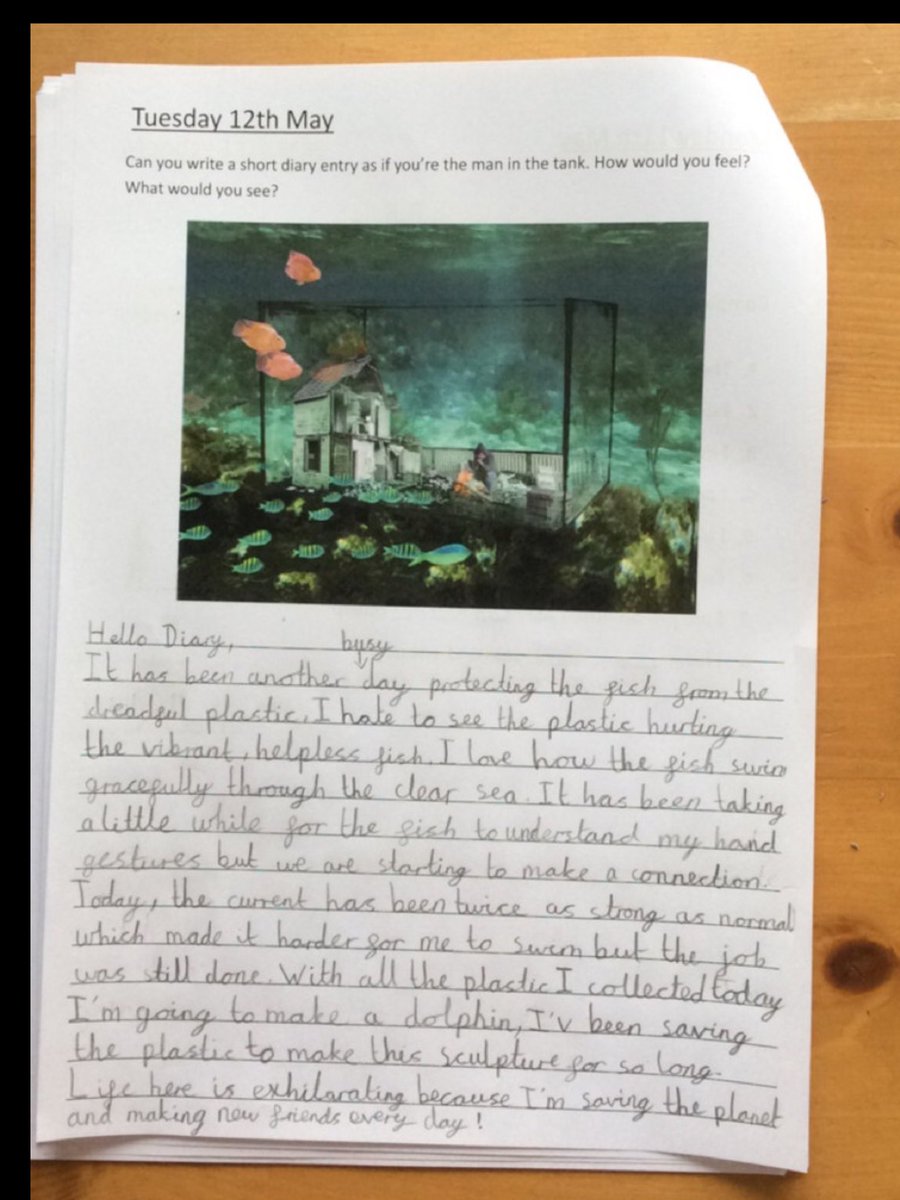 Tuesday 12th May
Can you write a short diary entry as if you're the man in the tank. How would you feel?
What would you see?
Hello Diary,
busy
It has been another day protecting the fish from the
dreadful plastic. I hate to see the plastic hurting
the vibrant, helpless fish. I love how the fish swim
gracefully through the clear sea. It has been taking
a little while for the fish to understand my hand
gestures but we are starting to make a connection.
Today, the current has been twice as strong as normal
which made it harder for me to swim but the job
was still done. With all the plastic I collected today
I'm going to make a dolphin, I'v been saving
the plastic to make this sculpture for so long.
Life here is exhilarating because I'm saving the planet
and making new friends every day!